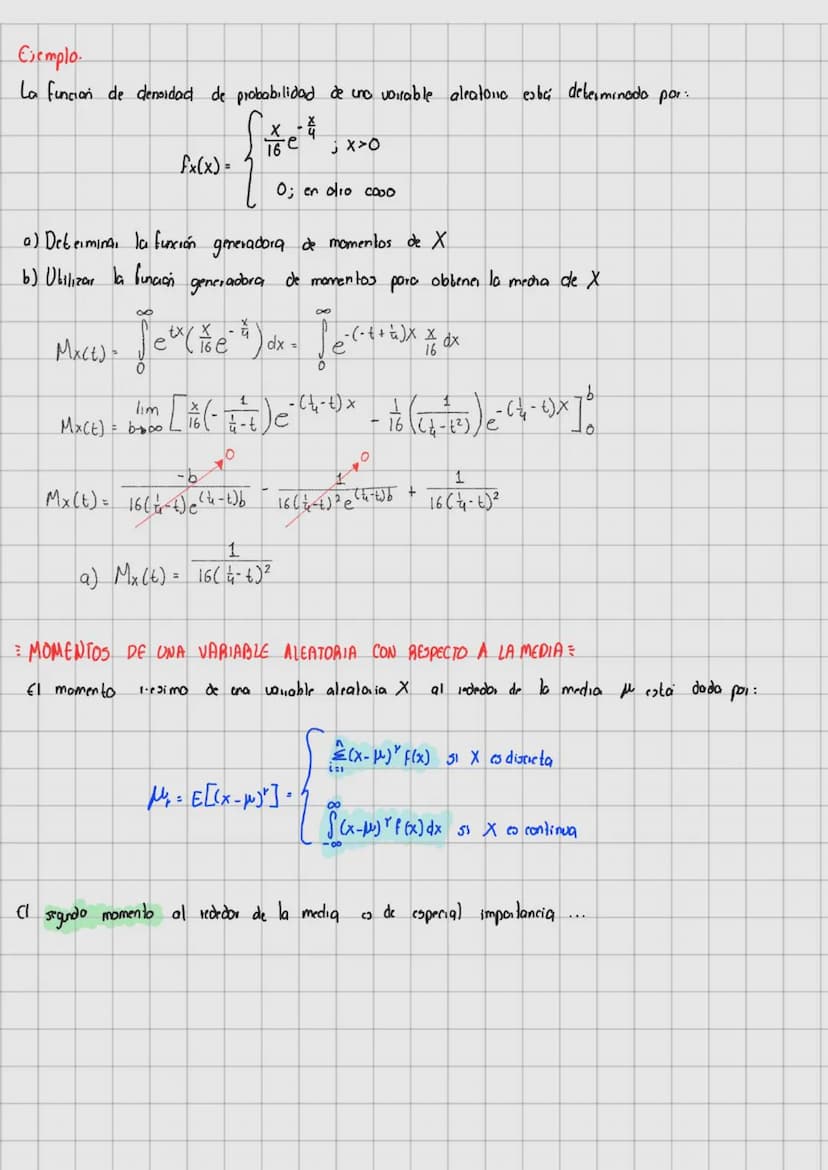 Ejemplo.
La función de densidad de probabilidad de una variable aleatoria está determinada por:
fx(x) = { x/16 e^(-x/4) ; x>0
0; en otro caso
a) Determinar la función generadora de momentos de X
b) Utilizar la función generadora de momentos para obtener la media de X
Mx(t) = ∫₀^∞ e^(tx) (x/16 e^(-x/4)) dx = ∫₀^∞ e^(-(-t+1/4)x) x/16 dx
Mx(t) = lim b→∞ [ x/16 (- 1/(1/4-t)) e^(-(1/4-t)x) - 1/16 (1/(1/4-t²)) e^(-(1/4-t)x) ]₀^b
Mx(t) = -b/(16(1/4-t)e^((1/4-t)b)) → 0 - 1/(16(1/4-t)² e^((1/4-t)b)) → 0 + 1/(16(1/4-t)²)
a) Mx(t) = 1/(16(1/4-t)²)
MOMENTOS DE UNA VARIABLE ALEATORIA CON RESPECTO A LA MEDIA
El momento r-esimo de una variable aleatoria X al rededor de la media μ está dada por:
μr = E[(x-μ)^r] = { Σ_(i=1)^n (x-μ)^r f(x) si X es discreta
∫_(-∞)^∞ (x-μ)^r f(x) dx si X es continua
El segundo momento al rededor de la media es de especial importancia ...